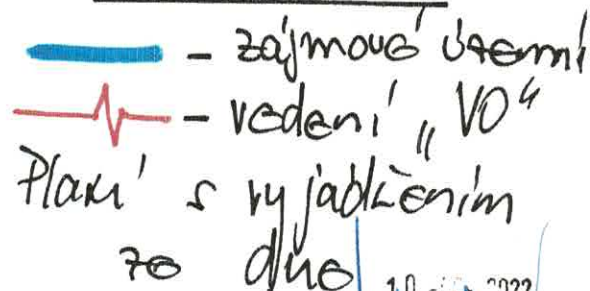 – zájmové území
– vedení „VO“
Platí s vyjádřením
ze dne
2022